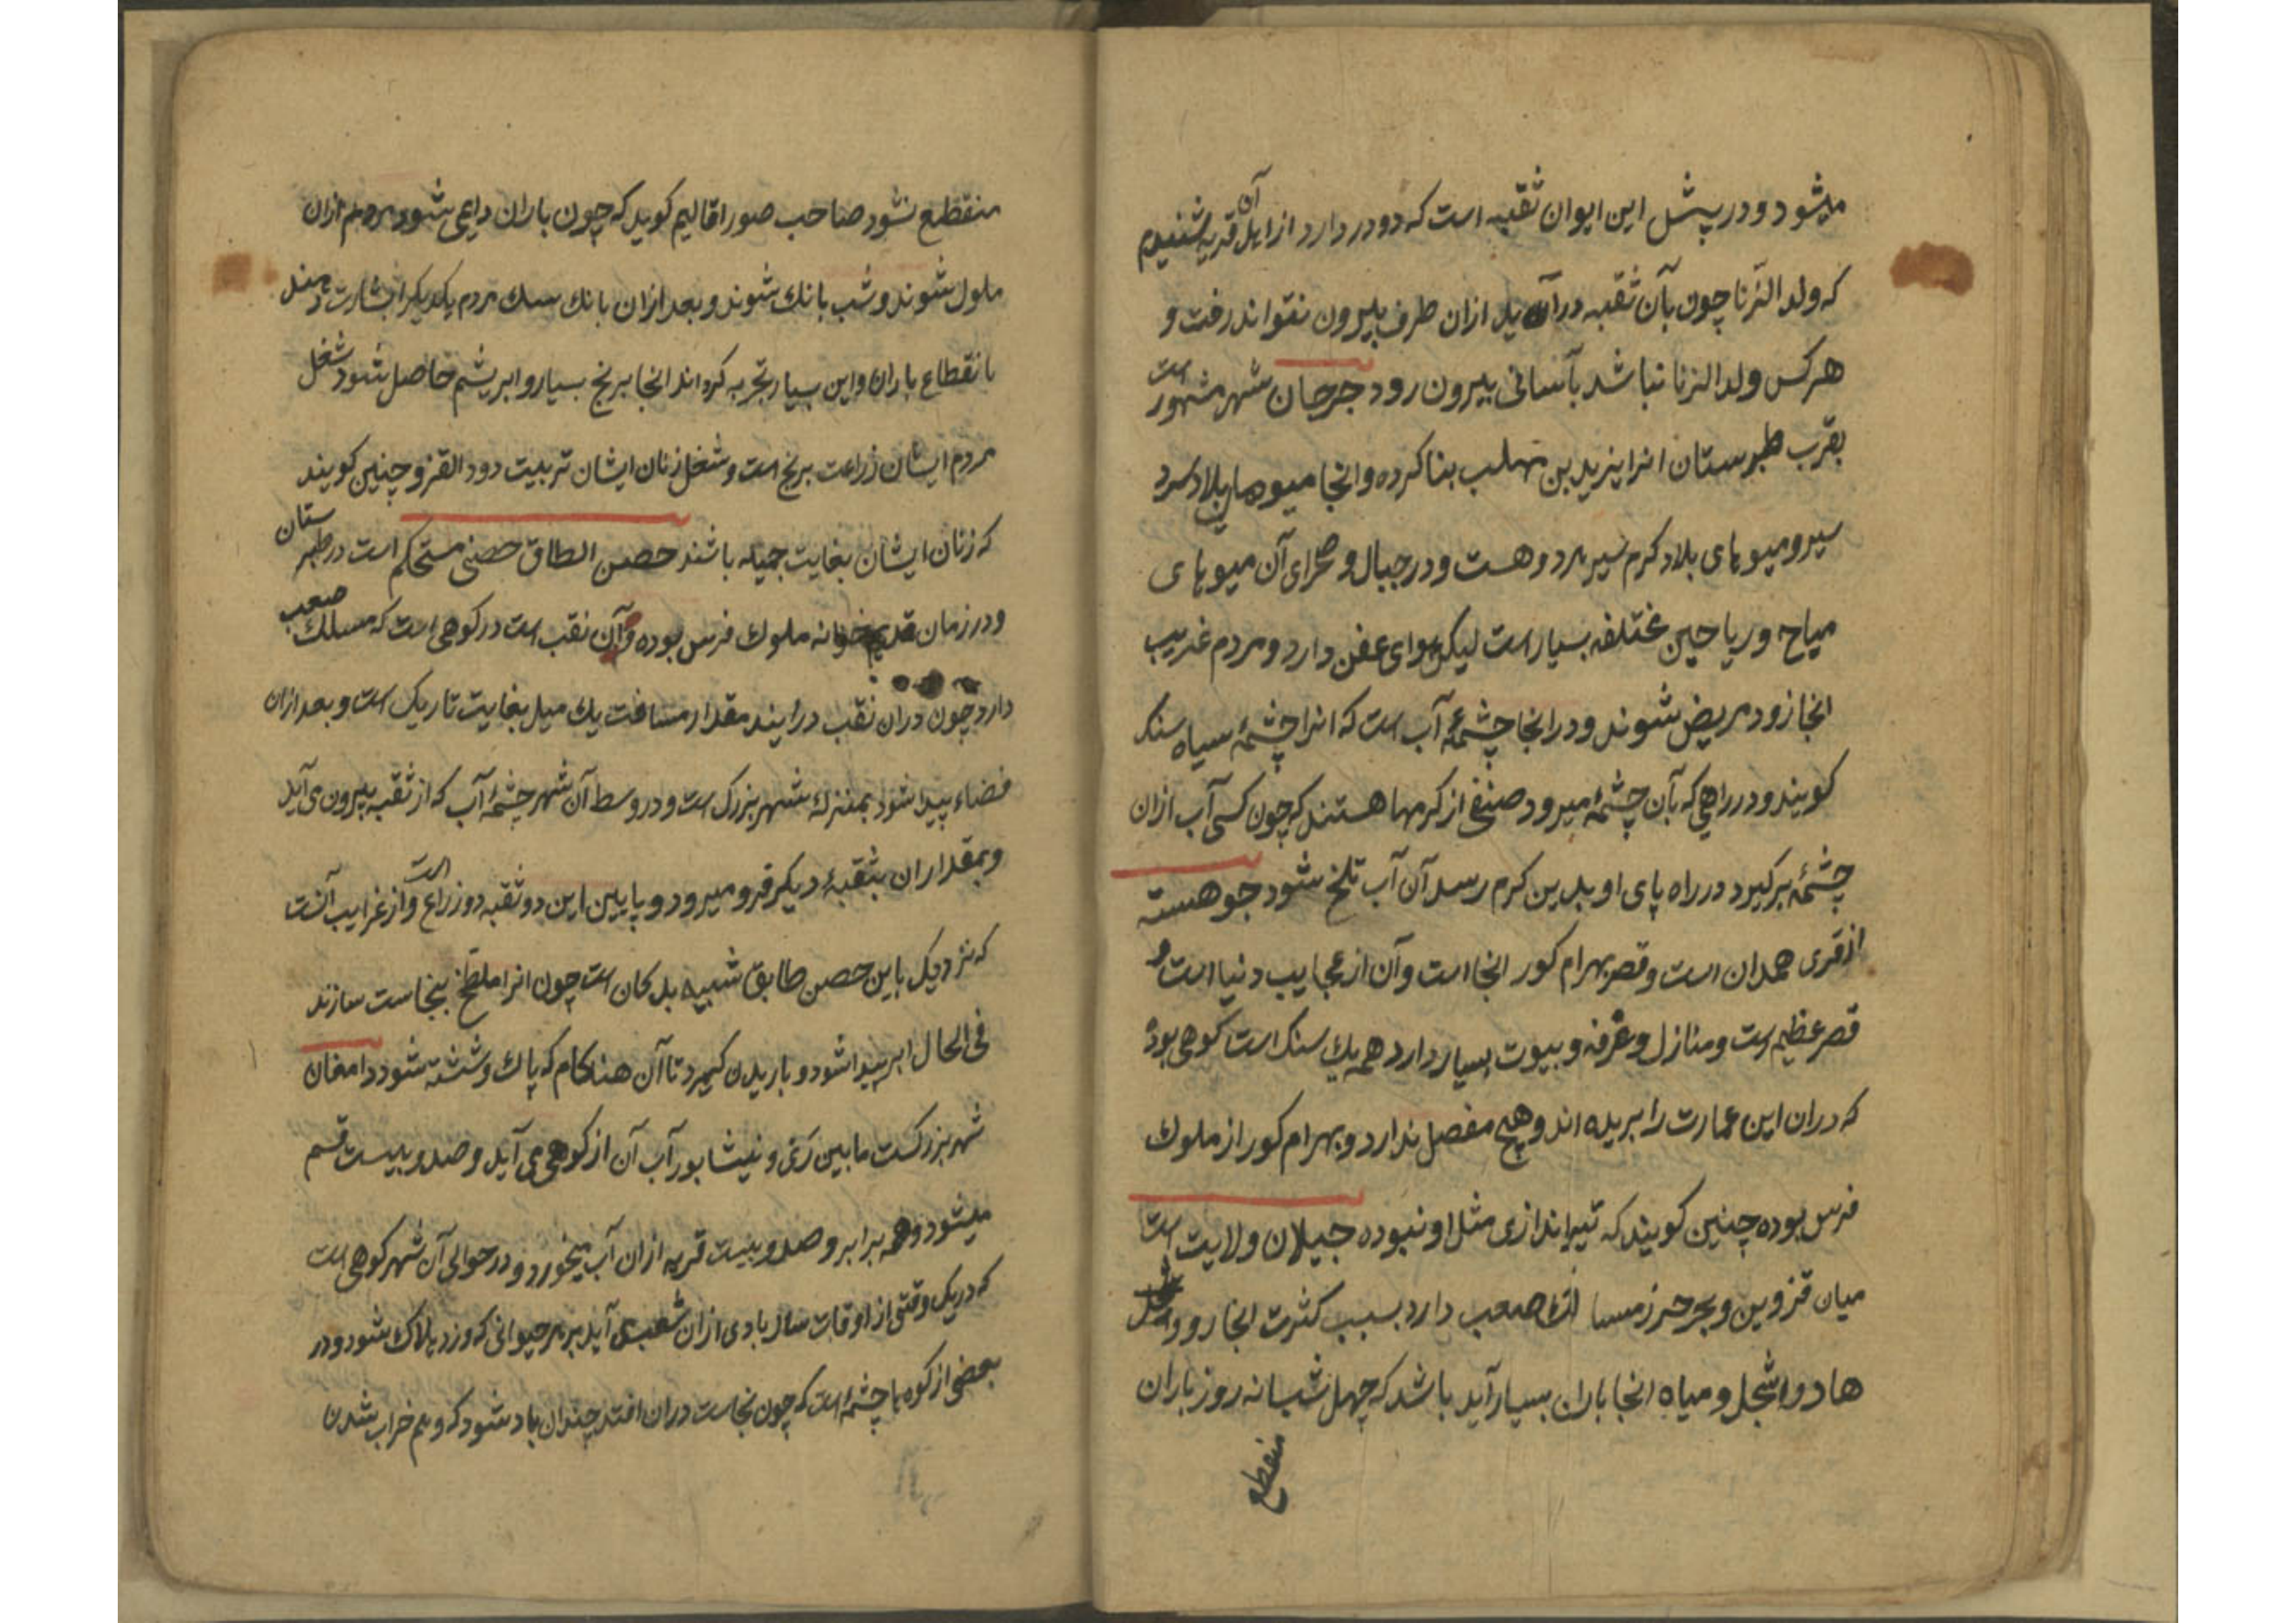 میشود و در پیش این ایوان ثقبه است که دو در دارد از اهل آن قریه شنیدم
که ولد الزنا چون بآن ثقبه در آید ازان طرف بیرون نتواند رفت و
هر کس ولد الزنا نباشد بآسانی بیرون رود جرجان شهر مشهور است
بقرب طبرستان انرا یزید بن مهلب بنا کرده و انجا میوهای بلاد سرد
سیر و میوهای بلاد کرم سیر مرد و هست و در جبال و صحرای آن میوهای
میاح و ریاحین مختلفه بسیار است لیکن هوای عفن دارد و مردم غریب
انجا زود مریض شوند و در انجا چشمهٔ آب است که انرا چشمهٔ سیاه سنک
کویند و در راهی که بآن چشمهٔ میرود صنفی از کرمها هستند که چون کسی آب ازان
چشمهٔ برکیرد در راه پای او بدین کرم رسد آن آب تلخ شود جوهسته
از قری همدان است و قصر بهرام کور انجا است و آن از عجایب دنیا است و
قصر عظیم است و منازل و غرفه و بیوت بسیار دارد همه یک سنک است کوهی بوده
که دران این عمارت را بریده اند و هیچ مفصل ندارد و بهرام کور از ملوک
فرس بوده چنین کویند که تیر اندازی مثل او نبوده جیلان ولایت است
میان قزوین و بحر خزر مسالک صعب دارد بسبب کثرت انجا رود
ها و اشجار و میاه انجا باران بسیار آید باشد که چهل شبانه روز باران
منقطع
منقطع نشود صاحب صور اقالیم کوید که چون باران دایمی شود مردم ازان
ملول شوند و شب بانک شوند و بعد ازان بانک سک مردم یکدیکر را بشارت دهند
بانقطاع باران و این بسیار تجربه کرده اند انجا برنج بسیار و ابریشم حاصل شود شغل
مردم ایشان زراعت برنج است و شغل زنان ایشان تربیت دود القز و چنین کویند
که زنان ایشان بغایت جمیله باشند حصن الطاق حصنی مستحکم است در طبرستان
و در زمان قدیم خزانه ملوک فرس بوده و آن نقب است در کوهی است که مسلک صعب
دارد چون دران نقب درایند مقدار مسافت یک میل بغایت تاریک است و بعد ازان
فضاء پیدا شود بمنزله شهر بزرک است و در وسط آن شهر چشمهٔ آب که از ثقبه بیرون می آید
و بمقدار ان بثقبهٔ دیکر فرو میرود و پایین این دو ثقبه دو زراع است و از غرایب آنست
که نزدیک باین حصن طابق شبیه بدکان است چون انرا ملطخ بنجاست سازند
فی الحال ابر پیدا شود و باریدن کیرد تا آن هنکام که پاک و شسته شود دامغان
شهر بزرکست مابین ری و نیشابور آب آن از کوهی می آید و صد و بیست قسم
میشود و همه برابر و صد و بیست قریه ازان آب میخورد و در حوالی آن شهر کوهی است
که در یک وقتی از اوقات سال بادی ازان شعب می آید بر هر حیوانی که وزد هلاک شود و در
بعضی از کوه ها چشمهٔ است که چون نجاست دران افتد چندان باد شود که وهم خراب شدن